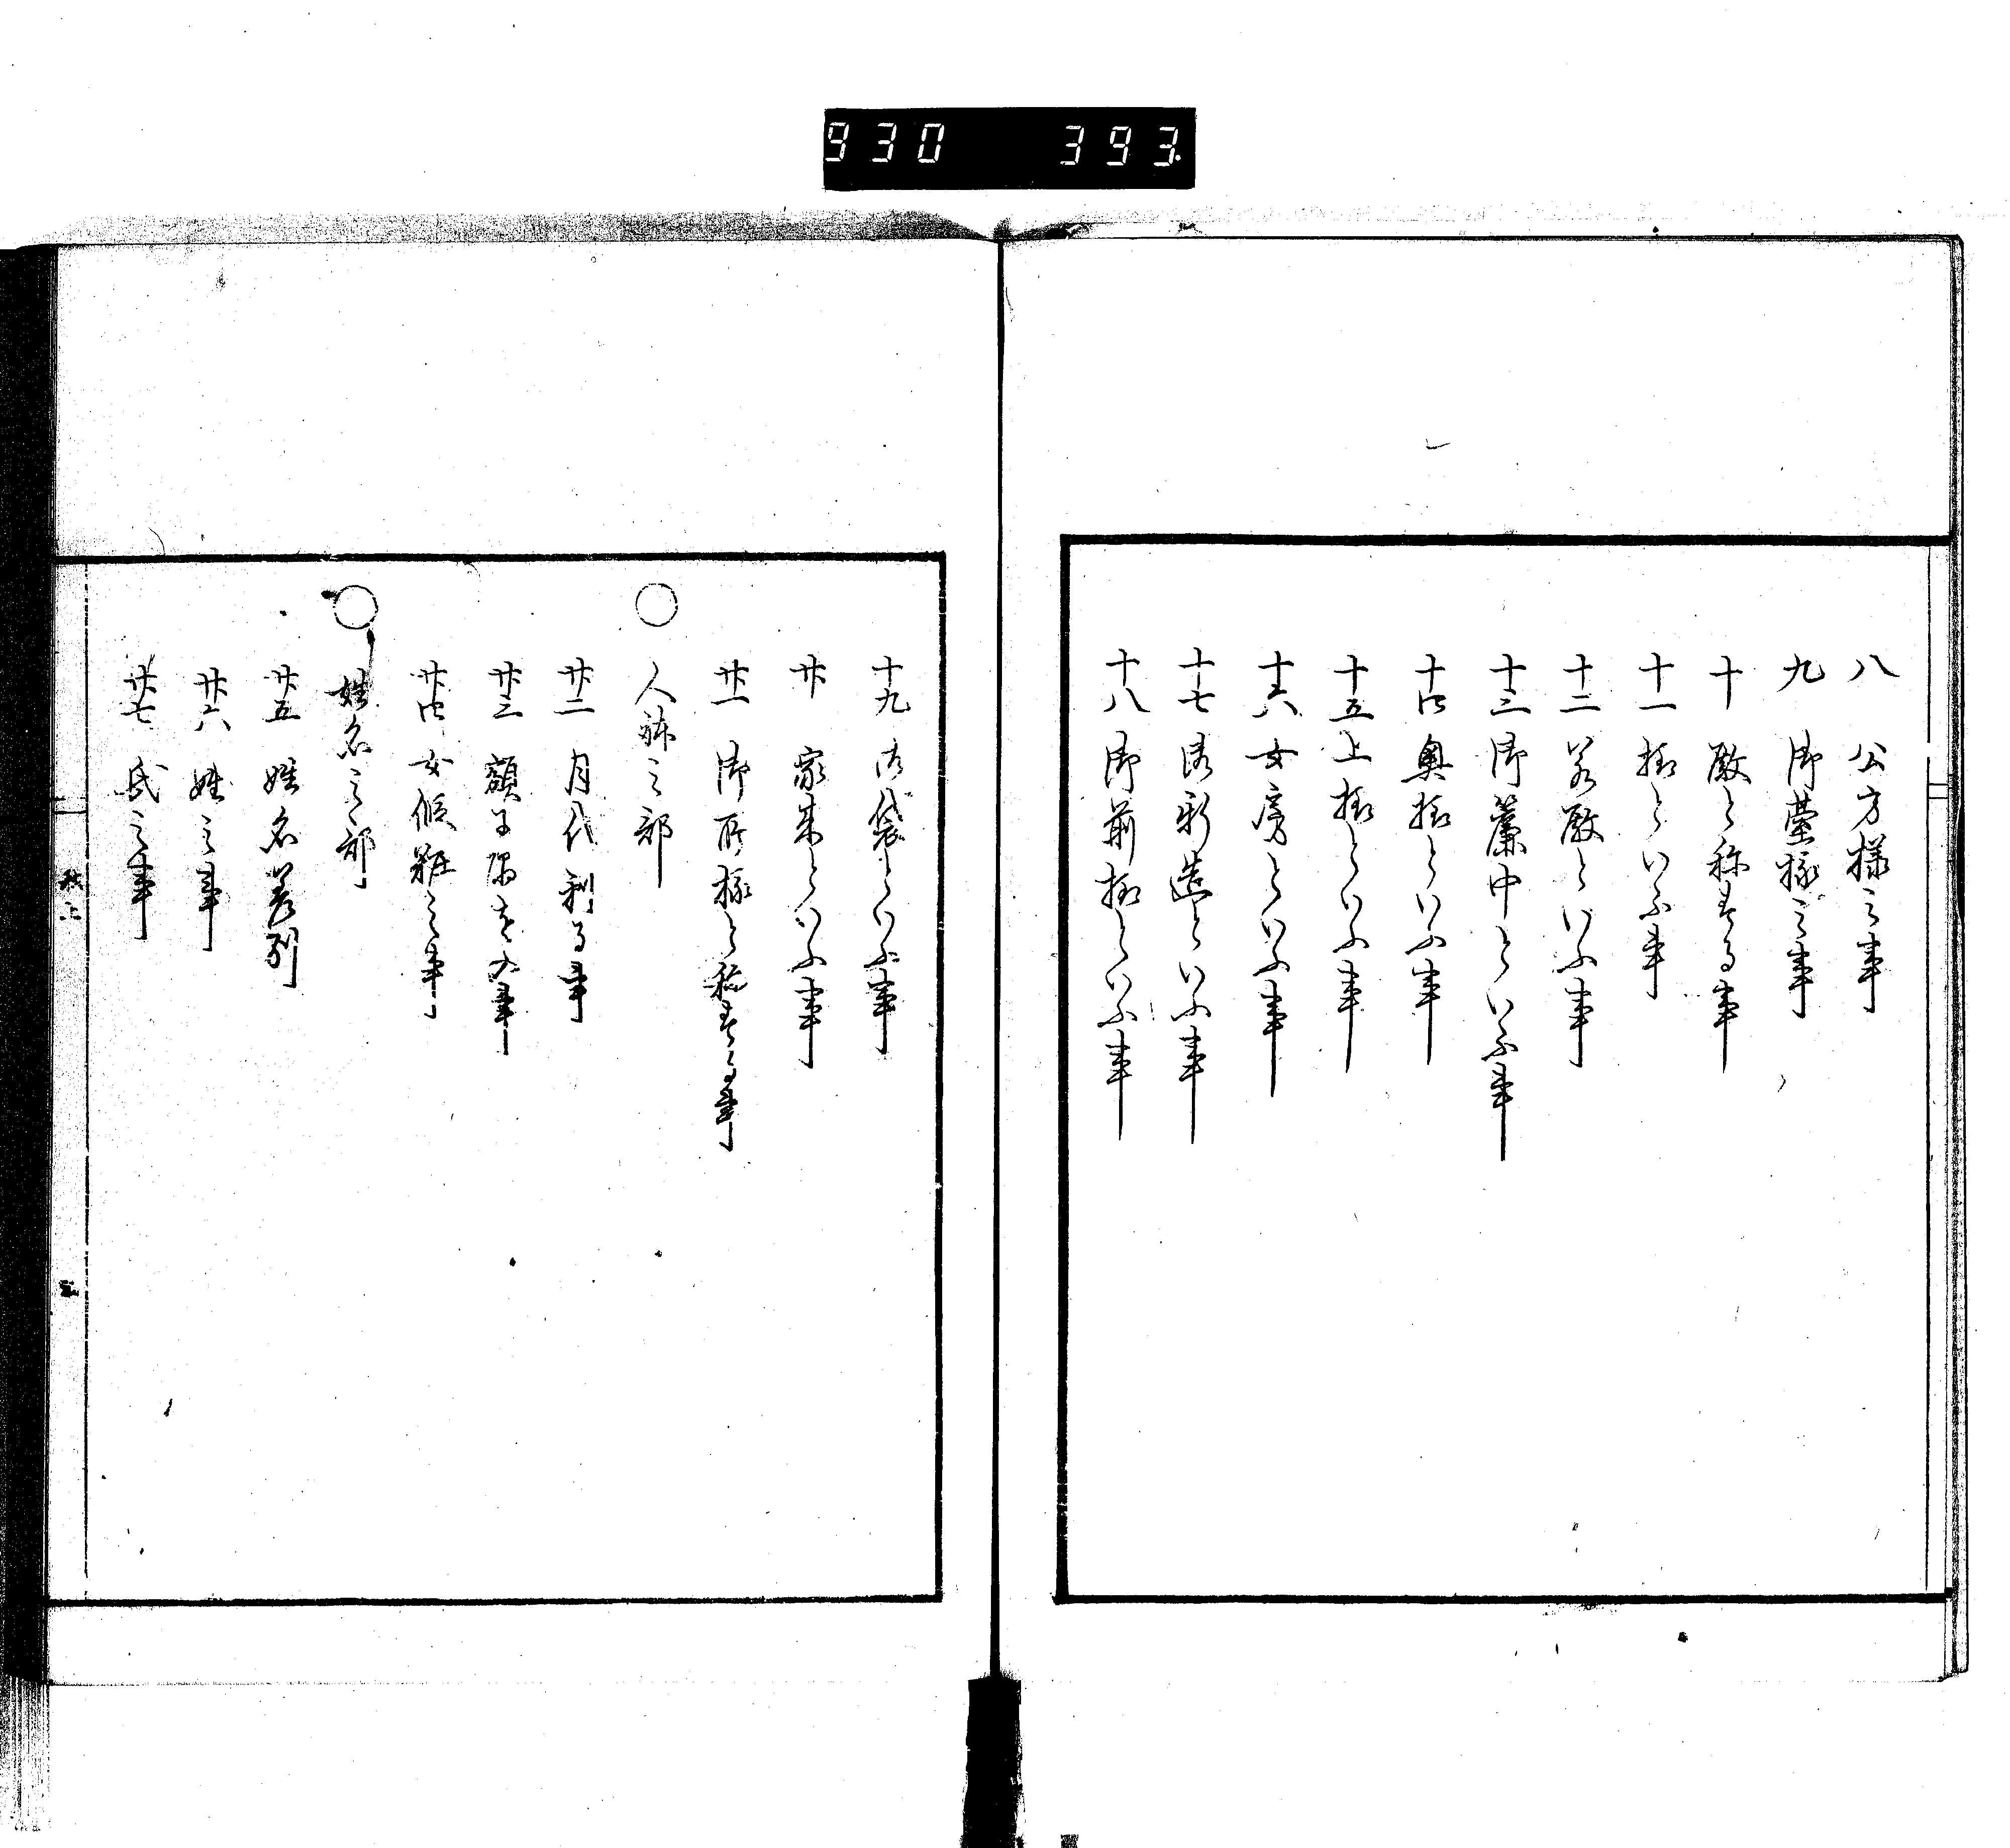 930 393
八 公方様之事
九 御臺様之事
十 殿と称する事
十一 様といふ事
十二 若殿といふ事
十三 御簾中といふ事
十四 奥様といふ事
十五 上様といふ事
十六 女房といふ事
十七 御新造といふ事
十八 御前様といふ事
十九 御袋といふ事
廿 家来といふ事
廿一 御所様と称する事
○ 人躰之部
廿二 月代剃る事
廿三 額に
廿四 女假粧之事
○ 姓名之部
廿五 姓名差別
廿六 姓之事
廿七 氏之事